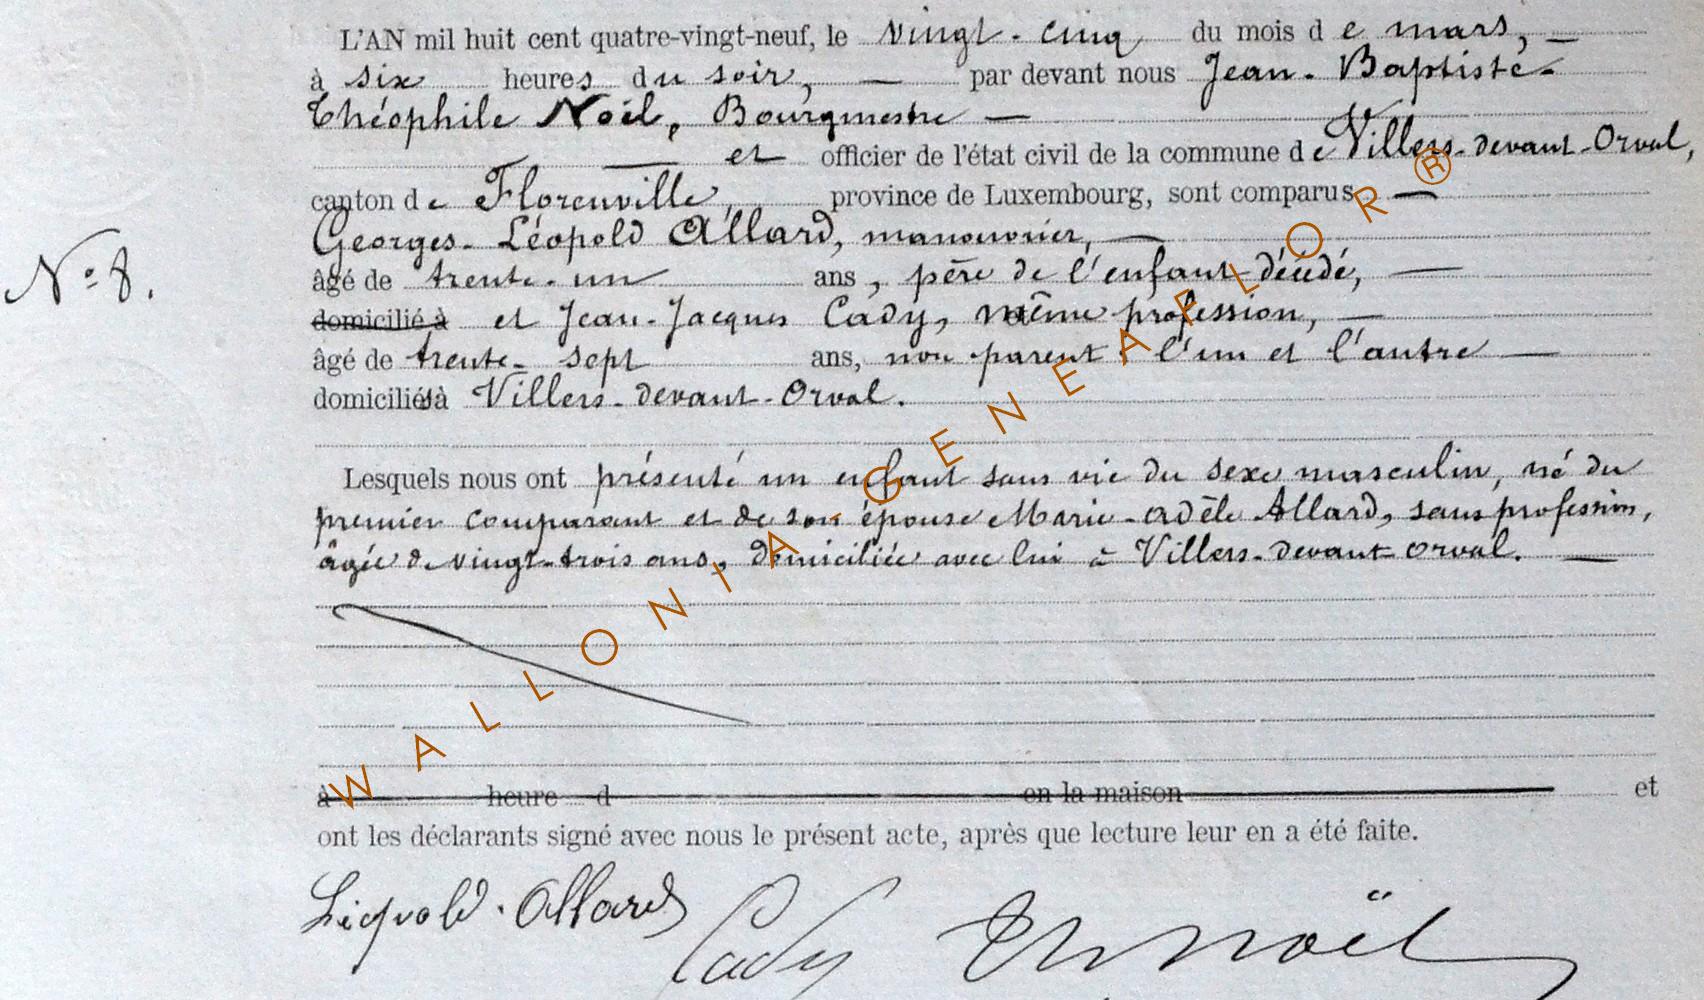 L'AN mil huit cent quatre-vingt-neuf, le vingt-cinq du mois de mars, —
à six heures du soir, — par devant nous Jean-Baptiste-
Théophile Noël, Bourgmestre —
— et officier de l'état civil de la commune de Villers-devant-Orval,
canton de Florenville, province de Luxembourg, sont comparus —
Georges-Léopold Allard, manouvrier, —
N° 8.
âgé de trente-un ans, père de l'enfant décédé, —
domicilié à et Jean-Jacques Cady, même profession, —
âgé de trente-sept ans, non parent l'un et l'autre —
domiciliés à Villers-devant-Orval.
Lesquels nous ont présenté un enfant sans vie du sexe masculin, né du
premier comparant et de son épouse Marie-Adèle Allard, sans profession,
âgée de vingt-trois ans, domiciliée avec lui à Villers-devant-Orval. —
à heure d en la maison et
ont les déclarants signé avec nous le présent acte, après que lecture leur en a été faite.
Léopold Allard Cady Th Noël
WALLONIA-GENEAFLOR®